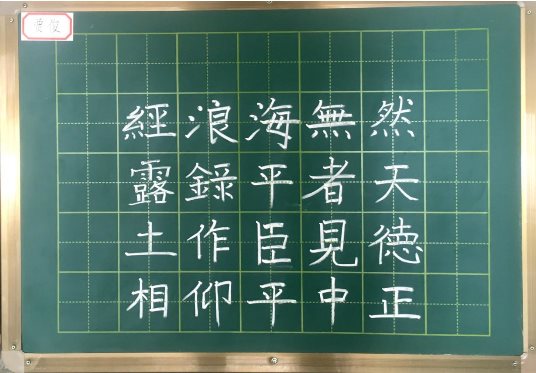 經浪海無然
露錄平者天
土作臣見德
相仰平中正